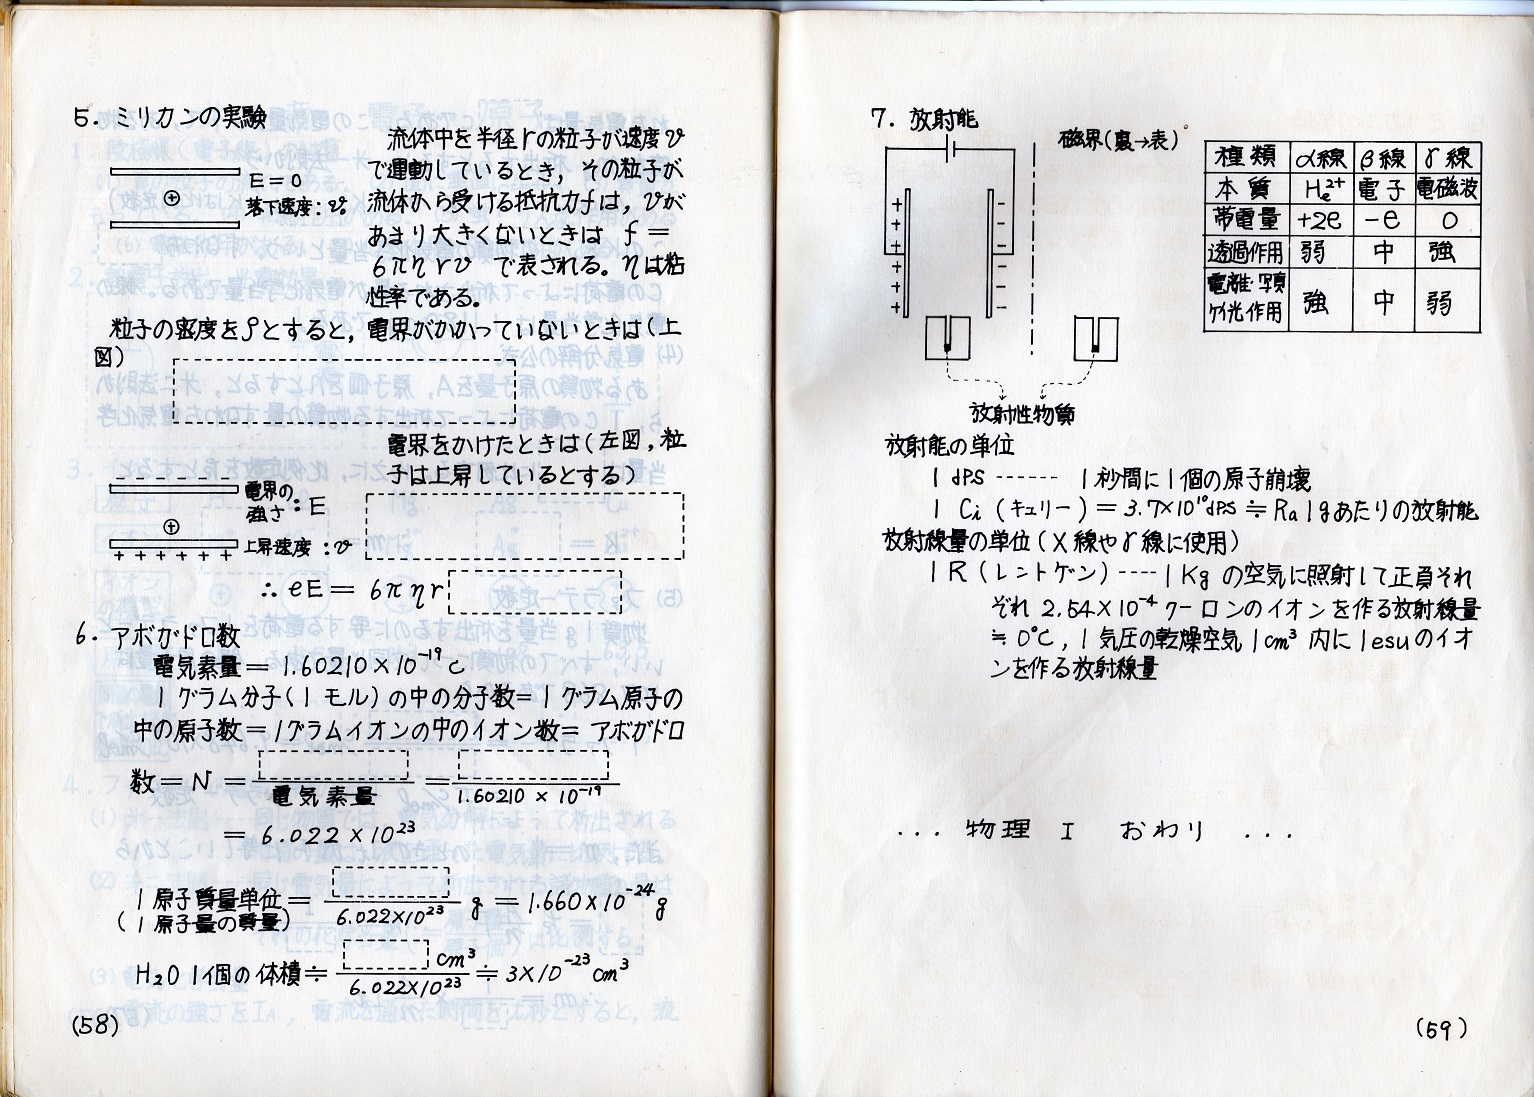 5. ミリカンの実験
流体中を半径rの粒子が速度v
で運動しているとき，その粒子が
流体から受ける抵抗力fは，vが
あまり大きくないときは f＝
6πηrv で表される。ηは粘
性率である。
E＝0
落下速度：v₀
粒子の密度をρとすると，電界がかかっていないときは（上
図）
電界をかけたときは（左図，粒
子は上昇しているとする）
電界の
強さ：E
上昇速度：v
∴ eE＝ 6πηr
6. アボガドロ数
電気素量＝1.60210×10⁻¹⁹c
1グラム分子（1モル）の中の分子数＝1グラム原子の
中の原子数＝1グラムイオンの中のイオン数＝ アボガドロ
数＝N＝
電気素量
＝
1.60210 × 10⁻¹⁹
＝6.022×10²³
1原子質量単位＝
（1原子量の質量）
6.022×10²³
g ＝1.660×10⁻²⁴g
H₂O 1個の体積≒
cm³
6.022×10²³
≒3×10⁻²³cm³
(58)
7. 放射能
磁界（裏→表）
放射性物質
種類 α線 β線 γ線
本質 He²⁺ 電子 電磁波
帯電量 +2e −e 0
透過作用 弱 中 強
電離・写真
ケイ光作用 強 中 弱
放射能の単位
1 dps ------ 1秒間に1個の原子崩壊
1 Ci（キュリー）＝3.7×10¹⁰dps≒Ra1gあたりの放射能
放射線量の単位（X線やγ線に使用）
1R（レントゲン）----1Kgの空気に照射して正負それ
ぞれ 2.54×10⁻⁴クーロンのイオンを作る放射線量
≒0℃，1気圧の乾燥空気1cm³内に1esuのイオ
ンを作る放射線量
... 物理 I おわり ...
(59)